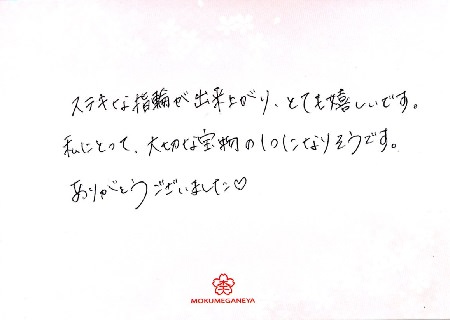 ステキな指輪が出来上がり、とても嬉しいです。
私にとって、大切な宝物の1つになりそうです。
ありがとうございました♡
MOKUMEGANEYA